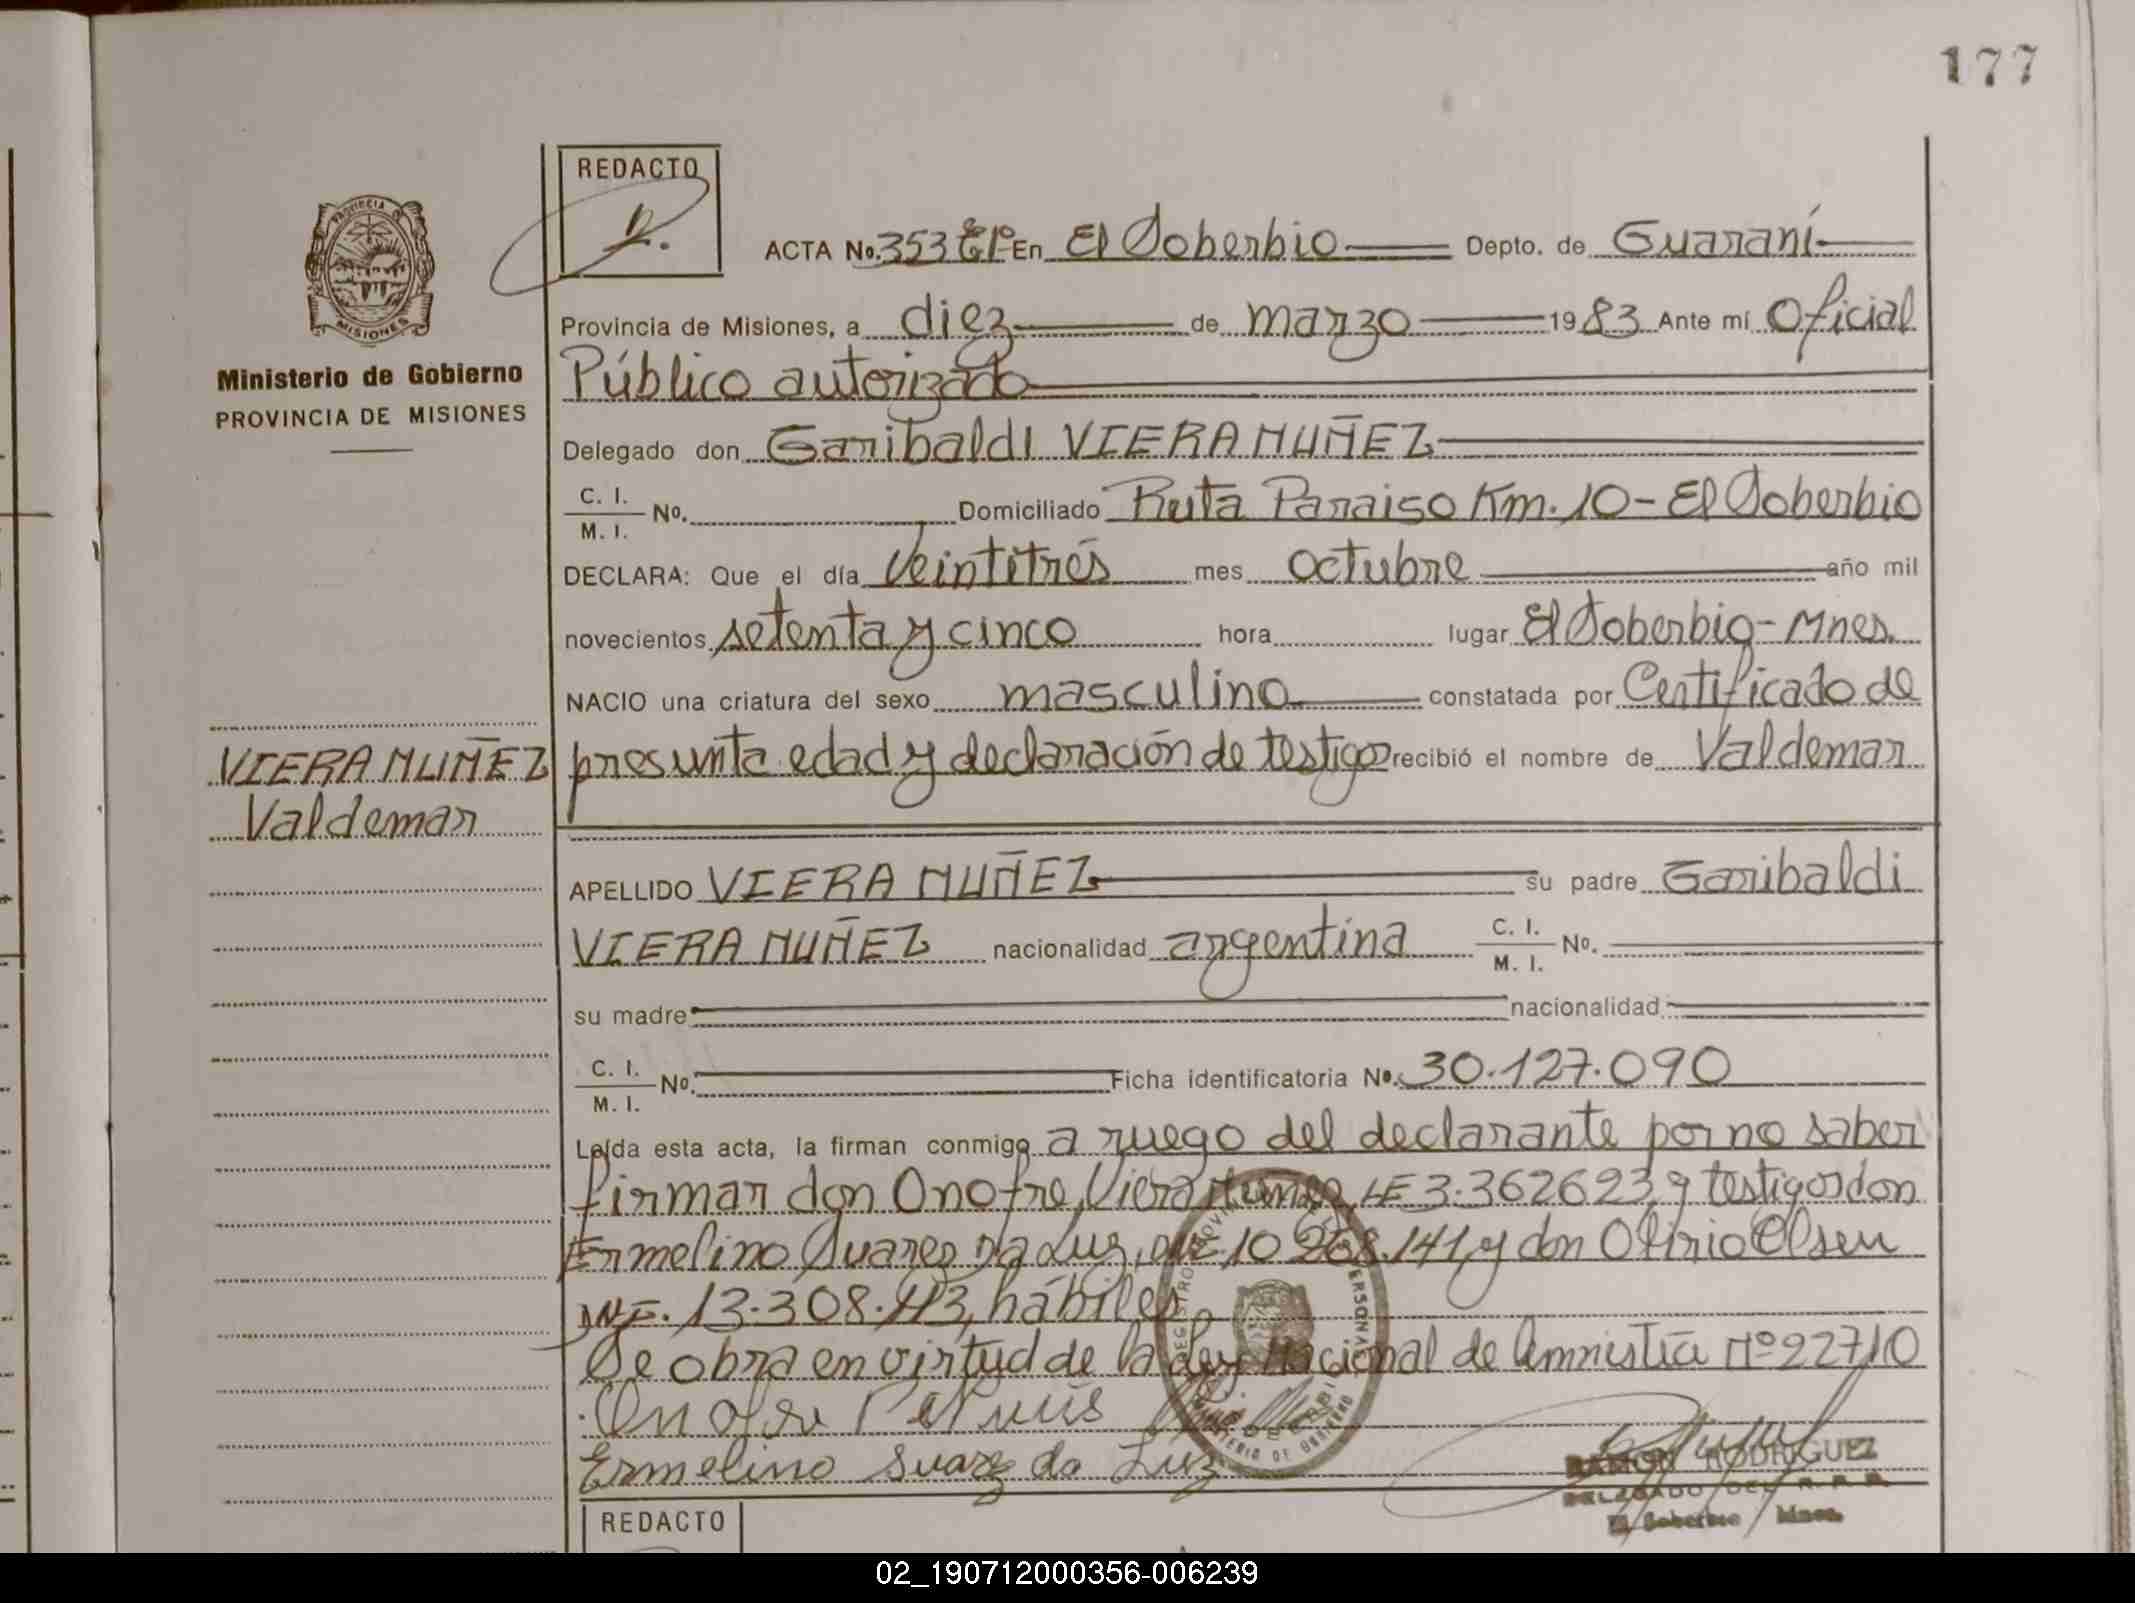 177
REDACTO
PROVINCIA DE
MISIONES
Ministerio de Gobierno
PROVINCIA DE MISIONES
ACTA No. 353 En El Soberbio Depto. de Guaraní
Provincia de Misiones, a diez de marzo 1983 Ante mí Oficial
Público autorizado
Delegado don Garibaldi VIERA NUÑEZ
C. I.
M. I. No. Domiciliado Ruta Paraiso Km. 10 - El Soberbio
DECLARA: Que el día Veintitrés mes octubre año mil
novecientos setenta y cinco hora lugar El Soberbio - Mnes.
NACIO una criatura del sexo masculino constatada por Certificado de
presunta edad y declaración de testigos recibió el nombre de Valdemar
VIERA NUÑEZ
Valdemar
APELLIDO VIERA NUÑEZ su padre Garibaldi
VIERA NUÑEZ nacionalidad argentina C. I.
M. I. No.
su madre nacionalidad
C. I.
M. I. No. Ficha identificatoria No. 30.127.090
Leída esta acta, la firman conmigo a ruego del declarante por no saber
firmar don Onofre Viera Nunes, LE 3.362623 y testigos don
Ermelino Suarez Da Luz, 10 268.141, y don Olirio Olsen
DNI. 13.308.413, hábiles
Se obra en virtud de la Ley Nacional de Amnistía Nº 22710
Ermelino Suarez da Luz
RAMON RODRIGUEZ
DELEGADO DEL R. P. P.
El Soberbio Mnes.
REDACTO
02_190712000356-006239